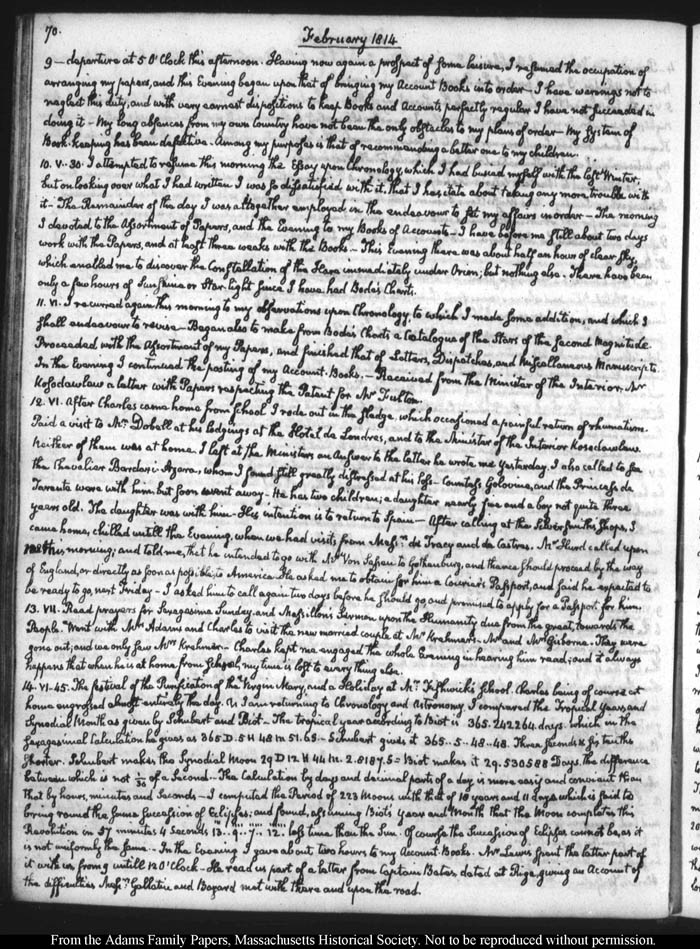 70.
February 1814
9 — departure at 5 O'Clock this afternoon. Having now again a prospect of some leisure, I resumed the occupation of
arranging my papers, and this Evening began upon that of bringing my Account Books into order — I have warnings not to
neglect this duty, and with very earnest dispositions to keep Books and Accounts perfectly regular I have not succeeded in
doing it — My long absences from my own country have not been the only obstacles to my plans of order — My System of
Book-keeping has been defective. Among my purposes is that of recommending a better one to my children.
10. V. 30. I attempted to resume this morning the Essay upon Chronology, which I had busied myself with the last Winter,
but on looking over what I had written I was so dissatisfied with it, that I hesitate about taking any more trouble with
it — The Remainder of the day I was altogether employed in the endeavour to set my affairs in order — The morning
I devoted to the Assortment of Papers, and the Evening to my Books of Accounts — I have before me still about two days
work with the Papers, and at least three weeks with the Books — This Evening there was about half an hour of clear sky,
which enabled me to discover the Constellation of the Hare immediately under Orion; but nothing else. There have been
only a few hours of Sunshine or Star-light since I have had Bode's Charts.
11. VI. I recurred again this morning to my observations upon Chronology, to which I made some addition, and which I
shall endeavour to revise — Began also to make from Bode's Charts a Catalogue of the Stars of the second Magnitude.
Proceeded with the Assortment of my Papers, and finished that of Letters, Dispatches, and Miscellaneous Manuscripts.
In the Evening I continued the posting of my Account-Books. — Received from the Minister of the Interior, Mr
Kosodawlew a letter with Papers respecting the Patent for Mr Fulton.
12. VI. After Charles came home from school I rode out in the sledge, which occasioned a painful return of rhumatism.
Paid a visit to Mr. Dobell at his lodgings at the Hotel de Londres, and to the Minister of the Interior Kosodawlew.
Neither of them was at home. I left at the Ministers an Answer to the letter he wrote me yesterday. I also called to see
the Chevalier Bardaxi y Azara, whom I found still greatly distressed at his loss — Countess Golovine, and the Princess de
Tarente were with him, but soon went away — He has two children; a daughter nearly five and a boy not quite three
years old. The daughter was with him. His intention is to return to Spain — After calling at the Silversmiths shops, I
came home, chilled untill the Evening, when we had visits from Messrs. de Tracy and de Castres. Mr Hurd called upon
me this morning; and told me, that he intended to go with Mr Von Sassen to Gothenburg, and thence should proceed by the way
of England, or directly as soon as possible, to America. He asked me to obtain for him a Courier's Passport, and said he expected to
be ready to go, next Friday — I asked him to call again two days before he should go and promised to apply for a Passport for him.
13. VII. Read prayers for Sexagesima Sunday, and Massillon's Sermon upon the Humanity due from the great, towards the
People. Went with Mrs Adams and Charles to visit the new married couple at Mr Krehmer's. Mr and Mrs Giborne. They were
gone out; and we only saw Mrs Krehmer — Charles kept me engaged the whole Evening in hearing him read; and it always
happens that when he is at home from School, my time is lost to every thing else.
14. VI-45. The festival of the Purification of the Virgin Mary, and a Holiday at Mr Fishwick's School. Charles being of course at
home engrossed almost entirely the day. As I am returning to Chronology and Astronomy, I compared the Tropical years and
Synodial Month as given by Schubert and Biot — The tropical year according to Biot is 365.242264 days. which in the
sexagesimal Calculation he gives as 365 D. 5 H 48 M 51.6S. — Schubert gives it 365..5..48..48. Three seconds & six tenths
shorter. Schubert makes the Synodial Moon 29 D 12 H 44 M. 2.8187,S = Biot makes it 29.530588 Days, the difference
between which is not 1/50 of a Second — The Calculation by days and decimal parts of a day is more easy and convenient than
that by hours, minutes and Seconds — I computed the Period of 223 Moons with that of 18 years and 11 days which is said to
bring round the same succession of Eclipses; and found, assuming Biot's Year and Month that the Moon completes this
Revolution in 37 minutes 4 Seconds 13.. 9.. 7.. 12.. less time than the Sun. Of course the Succession of Eclipses cannot be, as it
is not uniformly the same. — In the Evening I gave about two hours to my Account Books. Mr Lewis spent the latter part of
it with us from 9 untill 12 O'Clock — He read us part of a letter from Captain Bates, dated at Riga, giving an Account of
the difficulties Messrs. Gallatin and Bayard met with there and upon the road.
From the Adams Family Papers, Massachusetts Historical Society. Not to be reproduced without permission.